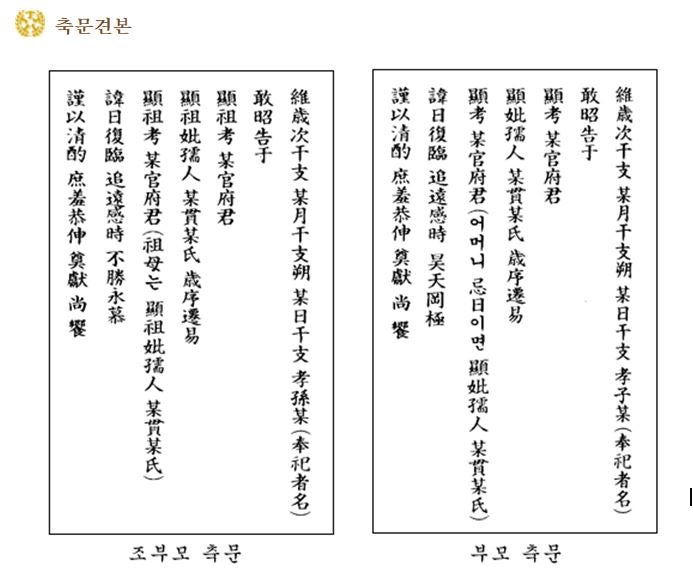 축문견본
維歲次干支 某月干支朔 某日干支 孝子某(奉祀者名)
敢昭告于
顯考 某官府君
顯妣孺人 某貫某氏 歲序遷易
顯考 某官府君(어머니 忌日이면 顯妣孺人 某貫某氏)
諱日復臨 追遠感時 昊天岡極
謹以清酌 庶羞恭伸 奠獻 尚饗
부모 축문
維歲次干支 某月干支朔 某日干支 孝孫某(奉祀者名)
敢昭告于
顯祖考 某官府君
顯祖妣孺人 某貫某氏 歲序遷易
顯祖考 某官府君(祖母는 顯祖妣孺人 某貫某氏)
諱日復臨 追遠感時 不勝永慕
謹以清酌 庶羞恭伸 奠獻 尚饗
조부모 축문